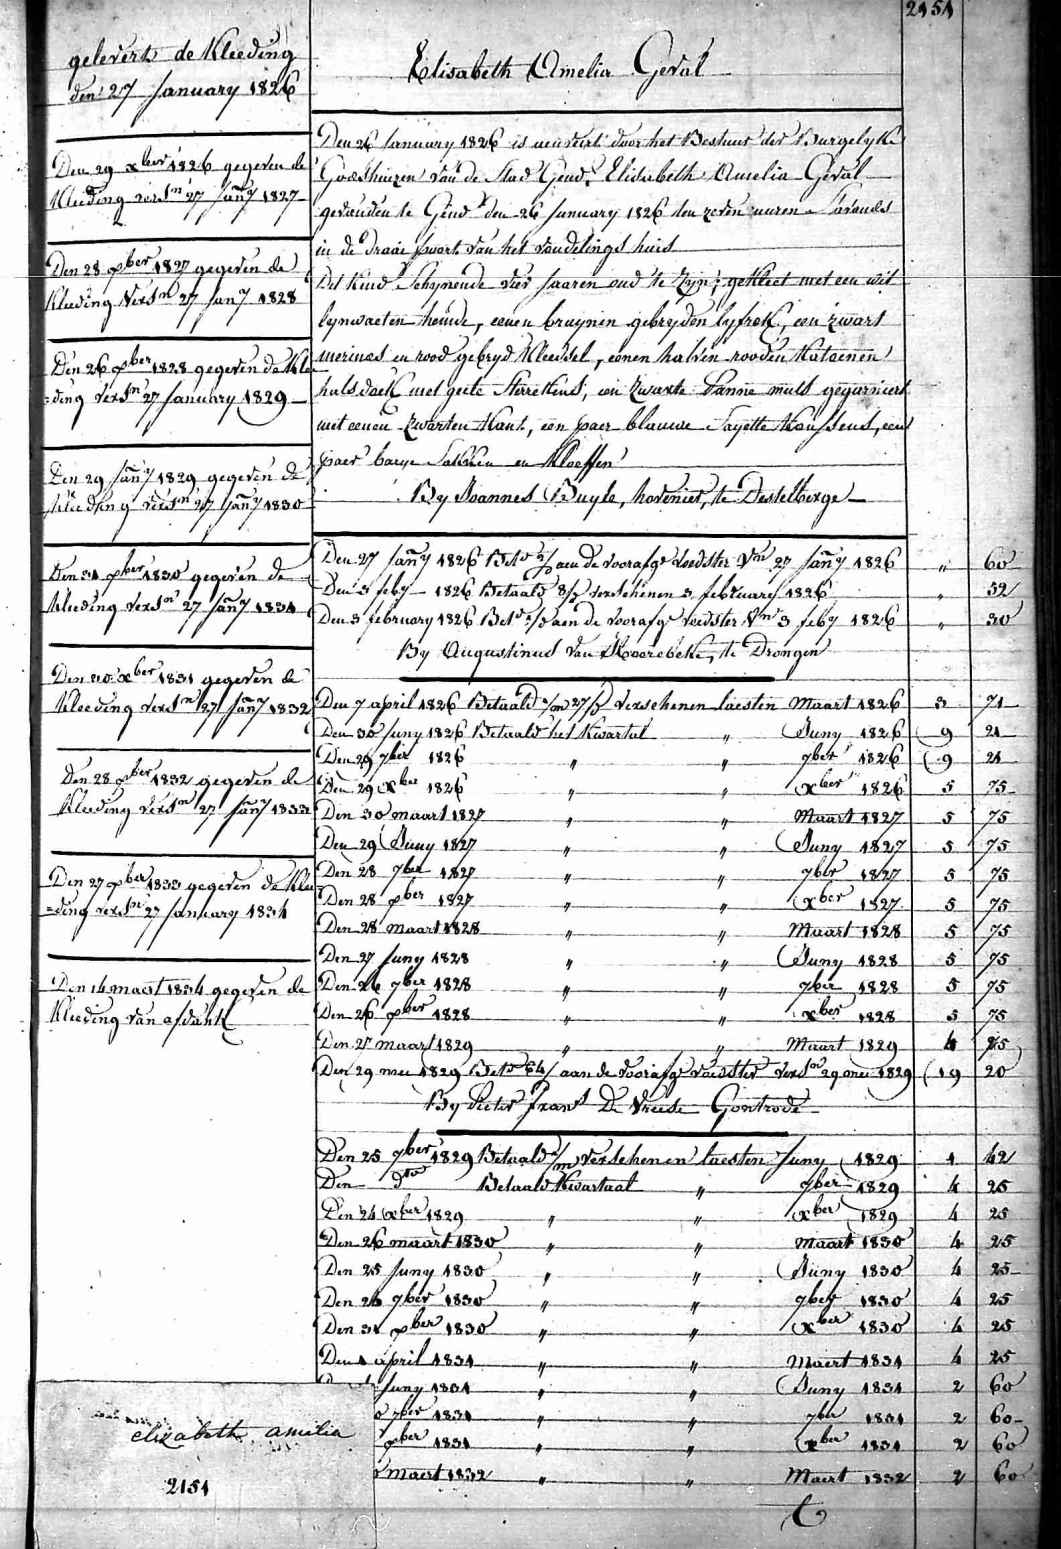 2151
geleverd de Kleeding
den 27 January 1826
Den 29 xber 1826 gegeven de
Kleeding versn 27 Jany 1827
Den 28 xber 1827 gegeven de
Kleeding versn 27 Jany 1828
Den 26 xber 1828 gegeven de Klee
=ding versn 27 January 1829
Den 29 Jany 1829 gegeven de
Kleeding versn 27 Jany 1830
Den 31 xber 1830 gegeven de
Kleeding versn 27 Jany 1831
Den 30 xber 1831 gegeven de
Kleeding versn 27 Jany 1832
Den 28 xber 1832 gegeven de
Kleeding versn 27 Jany 1833
Den 27 xber 1833 gegeven de Klee
=ding versn 27 January 1834
Den 14 maert 1834 gegeven de
Kleeding van afdank
elizabeth amilia
2151
Elisabeth Amelia Geval
Den 26 January 1826 is door het Bestuur der Burgelyke
Godshuizen van de Stad Gend, Elisabeth Amelia Geval
gevonden te Gend den 26 January 1826 ten zeven uuren S'avonds
in de draai poort van het vondelings huis
Dit kind schynende vier Jaaren oud te zyn, gekleet met een wit
lynwaeten hemde, eenen bruynen gebryden lyfrok, een zwart
merinos en rood gebryd Kleedsel, eenen halven rooden Katoenen
halsdoek met geele Sterrekens, een zwarte panne muts gegarniert
met eenen zwarten Kant, een paer blauwe Sayette Koussens, een
paer baeye Sokken en Kloeffen
By Joannes Buyle, hovenier, te Destelberge
Den 27 Jany 1826 Betd aen de voorafge voedster Vn 27 Jany 1826 " 60
Den 3 feby 1826 Betaald 8/ verschenen 3 february 1826 " 52
Den 3 february 1826 Betd aen de voorafge voedster Vn 3 feby 1826 " 30
By Augustinus van Hoorebeke, te Drongen
Den 7 april 1826 Betaald verschenen laesten Maart 1826 3 71
Den 30 Juny 1826 Betaald het Kwartal " Juny 1826 9 21
Den 29 7ber 1826 " " 7ber 1826 9 21
Den 29 xber 1826 " " xber 1826 5 75
Den 30 maart 1827 " " Maart 1827 5 75
Den 29 Juny 1827 " " Juny 1827 5 75
Den 28 7ber 1827 " " 7ber 1827 5 75
Den 28 xber 1827 " " xber 1827 5 75
Den 28 maart 1828 " " Maart 1828 5 75
Den 27 Juny 1828 " " Juny 1828 5 75
Den 26 7ber 1828 " " 7ber 1828 5 75
Den 26 xber 1828 " " xber 1828 5 75
Den 27 maart 1829 " " Maart 1829 4 25
Den 29 mei 1829 Betd 64/ aan de voorafge voedster versn 29 mei 1829 19 20
By Pieter frans De Vreese Gontrode
Den 25 7ber 1829 Betaald verschenen laesten Juny 1829 1 42
Den dto Betaald Kwartaal " 7ber 1829 4 25
Den 24 xber 1829 " " xber 1829 4 25
Den 26 maart 1830 " " Maart 1830 4 25
Den 25 Juny 1830 " " Juny 1830 4 25
Den 26 7ber 1830 " " 7ber 1830 4 25
Den 31 xber 1830 " " xber 1830 4 25
Den 1 april 1831 " " Maert 1831 4 25
Juny 1831 " " Juny 1831 2 60
7ber 1831 " " 7ber 1831 2 60
xber 1831 " " xber 1831 2 60
maert 1832 " " Maert 1832 2 60